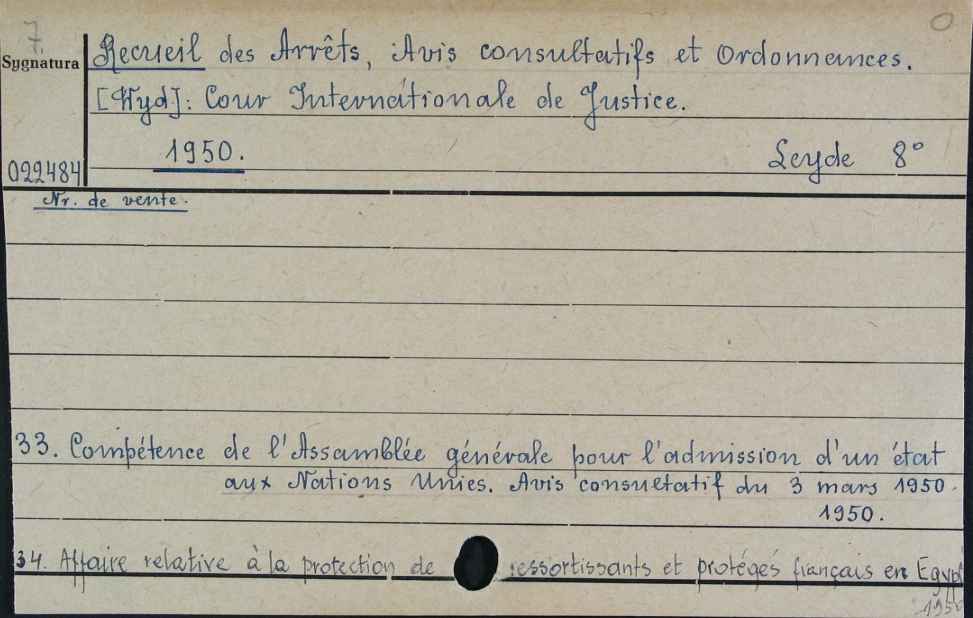 7.
O
Sygnatura
Recueil des Arrêts, Avis consultatifs et Ordonnances.
[Wyd]: Cour Internationale de Justice.
1950.
Leyde 8°
022484
Nr. de vente.
33. Compétence de l'Assamblée générale pour l'admission d'un état
aux Nations Unies. Avis consultatif du 3 mars 1950.
1950.
34. Affaire relative à la protection de ressortissants et protégés français en Egypt
1950